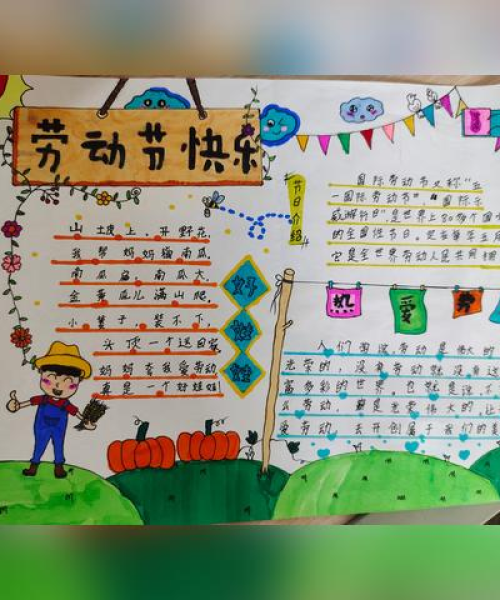 劳动节快乐
山坡上,开野花,
我帮妈妈摘南瓜
南瓜扁,南瓜大,
金黄瓜儿满山爬,
小篓子,装不下,
头顶一个送回家
妈妈夸我爱劳动
真是一个好娃娃
好
娃
娃
节日介绍
国际劳动节又称"五
一国际劳动节"、"国际示
威游行日"是世界上80多个国
的全国性节日。定在每年五月
它是全世界劳动人民共同拥
我
爱
劳
人们常说,劳动是伟大的
光荣的,没有劳动就没有这
富多彩的世界,也就是说不
去劳动,都是光荣伟大的,让
爱劳动,去开创属于我们的美